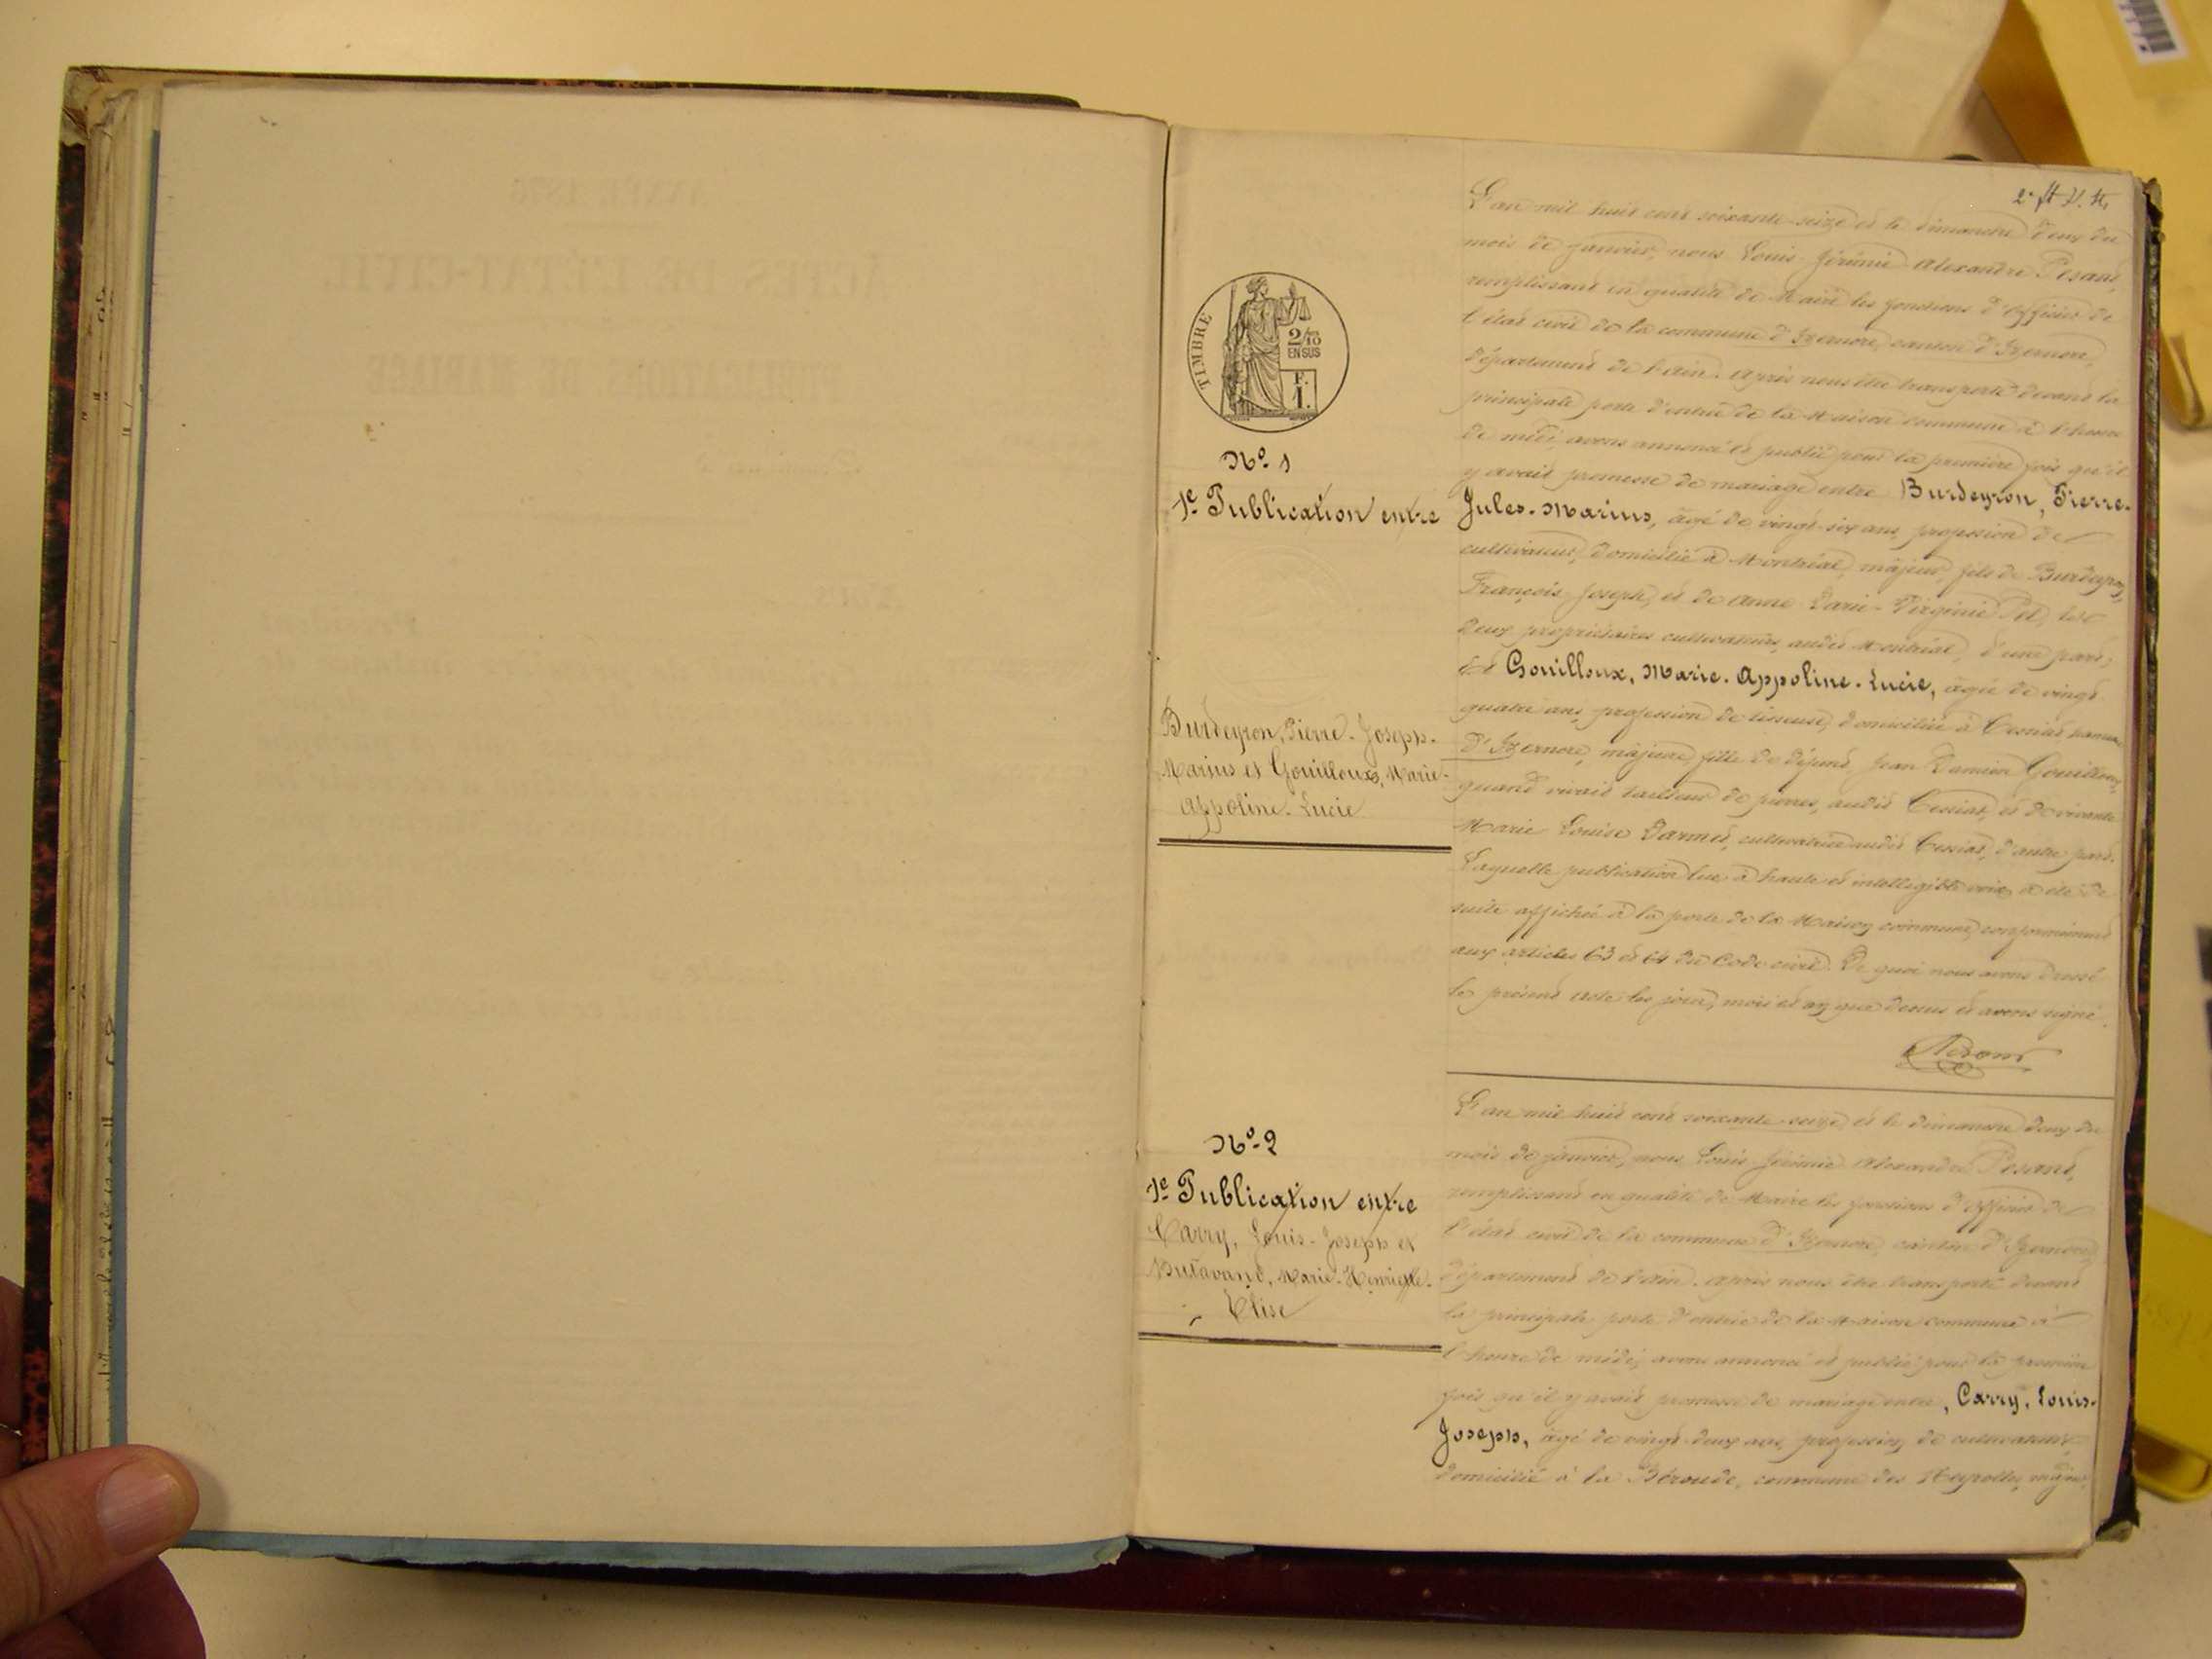 2e
TIMBRE
2/10
EN SUS
F.
1.
No. 1
1e Publication entre
Burdeyron, Pierre-Joseph-
Marius et Gouilloux, Marie-
Appoline-Lucie
L'an mil huit cent soixante-seize et le dimanche deux du
mois de janvier, nous Louis Jérémie Alexandre
remplissant en qualité de Maire les fonctions d'officier de
l'état civil de la commune d'Izernore, canton d'Izernore,
département de l'Ain. Après nous être transporté devant la
principale porte d'entrée de la Maison commune à l'heure
de midi, avons annoncé et publié pour la première fois qu'il
y avait promesse de mariage entre Burdeyron, Pierre-
Jules-Marius, âgé de vingt-six ans, profession de
cultivateur, domicilié à Montréal, majeur, fils de Burdeyron,
François Joseph, et de Anne Marie-Virginie les
deux propriétaires cultivateurs, audit Montréal, d'une part;
Et Gouilloux, Marie-Appoline-Lucie, âgée de vingt
quatre ans, profession de tisseuse, domiciliée à Cessiat hameau
d'Izernore, majeure, fille de défunt Jean Damien Gouilloux,
quand vivait tailleur de pierres, audit Cessiat, et de vivante
Marie Louise Darmet, cultivatrice audit Cessiat, d'autre part.
Laquelle publication lue à haute et intelligible voix a été de
suite affichée à la porte de la Maison commune, conformément
aux articles 63 et 64 du Code civil. De quoi nous avons dressé
le présent acte les jour, mois et an que dessus et avons signé.
No. 2
1e Publication entre
Carry, Louis-Joseph et
Butavand, Marie-Henriette-
Elise
L'an mil huit cent soixante-seize et le dimanche deux du
mois de janvier, nous Louis Jérémie Alexandre
remplissant en qualité de Maire les fonctions d'officier de
l'état civil de la commune d'Izernore, canton d'Izernore,
département de l'Ain. Après nous être transporté devant
la principale porte d'entrée de la Maison commune à
l'heure de midi, avons annoncé et publié pour la première
fois qu'il y avait promesse de mariage entre, Carry, Louis-
Joseph, âgé de vingt-deux ans, profession de cultivateur,
domicilié à la Béroude, commune des Neyrolles, majeur,